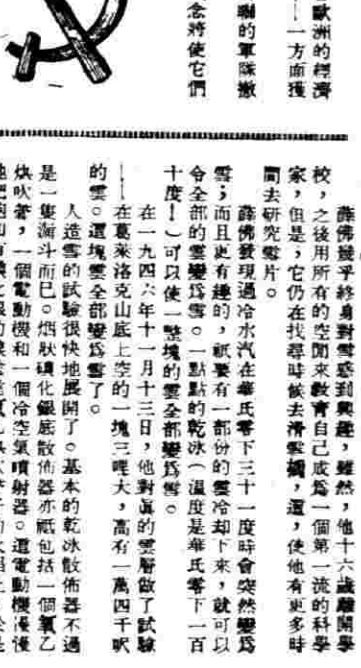 歐洲的經濟
一方面獲
聯的軍隊撤
念將使它們
薛佛幾乎終身對雪感到興趣,雖然,他十六歲離開學
校,之後用所有的空閒來教育自己成爲一個第一流的科學
家,但是,它仍在找尋時候去滑雪橇,還,使他有更多時
間去研究雪片。
薛佛發現過冷水汽在華氏零下三十一度時會突然變爲
雪;而且更有趣的,祇要有一部份的雲冷却下來,就可以
令全部的雲變爲雪。一點點的乾冰(温度是華氏零下一百
十度!)可以使一整塊的雲全部變爲雪。
在一九四六年十一月十三日,他對眞的雲層做了試驗
——在葛萊洛克山底上空的一塊三哩大,高有一萬四千呎
的雲。這塊雲全部變爲雪了。
人造雪的試驗很快地展開了。基本的乾冰散佈器不過
是一隻漏斗而巳。烟狀碘化銀底散佈器亦祇包括一個氧乙
炔吹管,一個電動機和一個冷空氣噴射器。這電動機慢慢